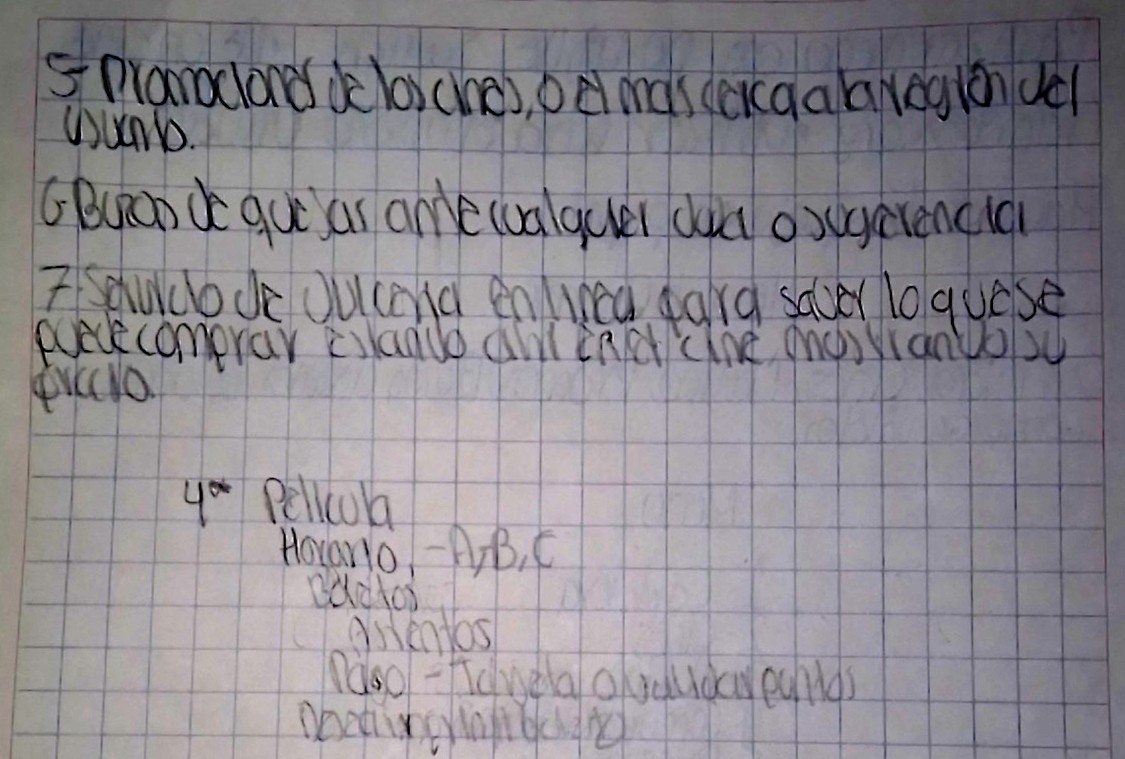 5- Promociones de los cines, o el mas cerca a la región del
usuario.
6-Buzon de quejas ante cualquier duda o sugerencia
7-Servicio de Dulceria en linea para saver lo que se
puede comprar estando ahi en el cine, mostrando su
precio.
4° Pelicula
Horario, -A,B,C
Boletos
Asientos
Pago - Tarjeta o validar puntos